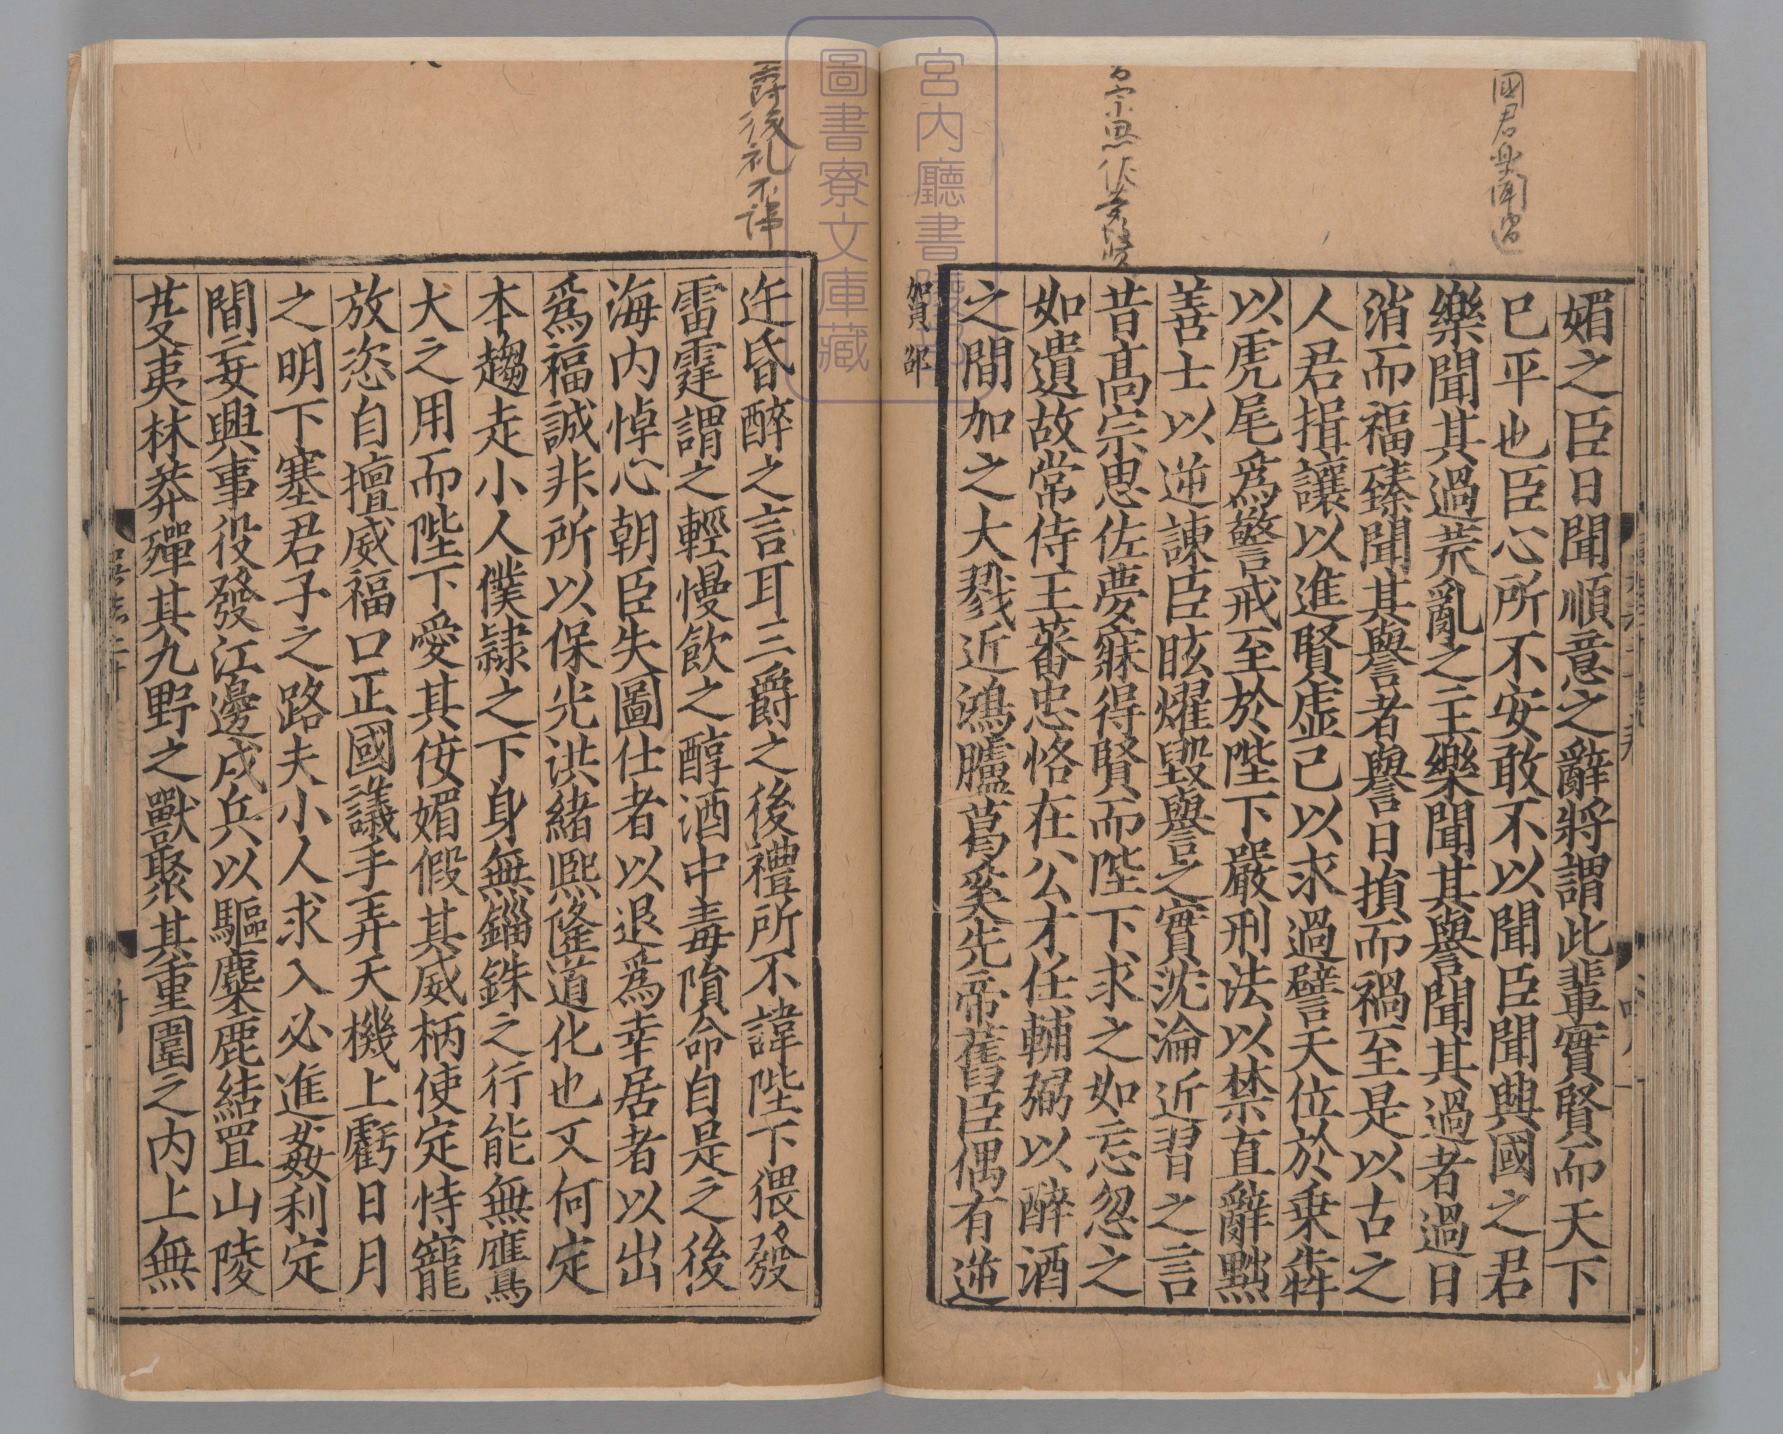 國君樂聞過
媚之臣日聞順意之辭將謂此輩實賢而天下
已平也臣心所不安敢不以聞臣聞興國之君
樂聞其過荒亂之主樂聞其譽聞其過者過日
消而福臻聞其譽者譽日損而禍至是以古之
人君揖讓以進賢虛己以求過譬天位於乗犇
以虎尾爲警戒至於陛下嚴刑法以禁直辭黜
善士以逆諫臣眩燿毀譽之實沈淪近習之言
昔髙宗思佐夢寐得賢而陛下求之如忘忽之
如遺故常侍王蕃忠恪在公才任輔弼以醉酒
之間加之大戮近鴻臚葛奚先帝舊臣偶有逆
賀邵
宮内廳書陵部
圖書寮文庫藏
爵後礼不諱
迕昏醉之言耳三爵之後禮所不諱陛下猥發
雷霆謂之輕慢飲之醇酒中毒隕命自是之後
海内悼心朝臣失圖仕者以退爲幸居者以出
爲福誠非所以保光洪緒熙隆道化也又何定
本趨走小人僕隸之下身無錙銖之行能無鷹
犬之用而陛下愛其佞媚假其威柄使定恃寵
放恣自擅威福口正國議手弄天機上虧日月
之明下塞君子之路夫小人求入必進姦利定
間妄興事役發江邊戍兵以驅麋鹿結罝山陵
芟夷林莽殫其九野之獸聚其重圍之内上無